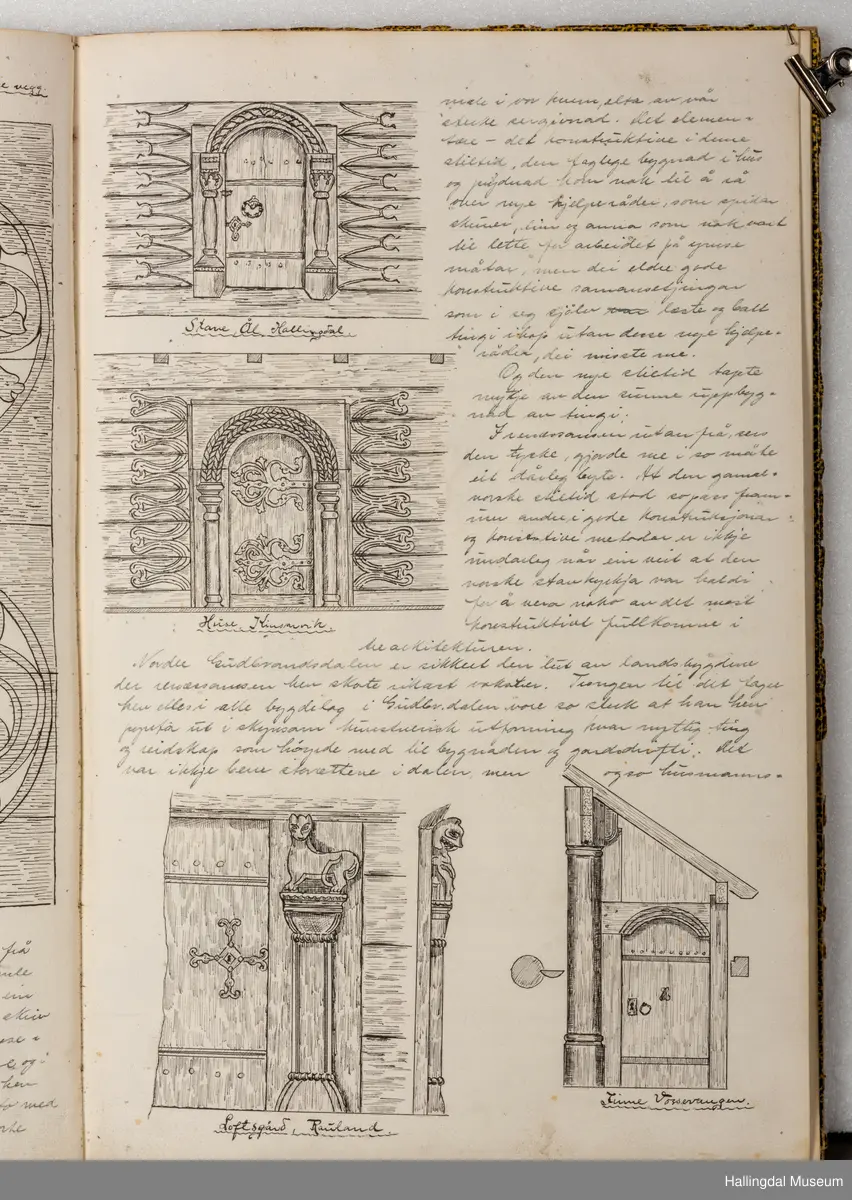 e vegg.
i vor kunn, elsa, av vår
sterke sergivnad. Det elemen=
tære – det konstruktive i denne
stiltid, den faglege bygnad i hus
og prydnad kom nok til å så
over nye hjelperåder, som spikar
skruer, lim og anna som nok vart
til lette for arbeidet på ymse
måtar, men dei eldre gode
konstruktive samansetjingar
som i seg sjølv læste og batt
tingi ihop utan desse nye hjelpe=
råder, dei misste me.
Og den nye stiltid tapte
mykje av den sunne uppbyg=
nad av tingi.
I renæssansen utanfrå, sers
den tyske, gjorde me i so måte
eit dårleg byte. At den gamal=
norske stiltid stod sopass fram=
um andre i gode konstruksjonar
og konstruktive metodar er ikkje
underleg når ein veit at den
norske stavkyrkja var haldi
for å vera noko av det mest
konstruktivt fullkomne i
trearkitekturen.
Nordre Gudbrandsdalen er sikkert den lut av landsbygdene
der renæssansen hev skote rikast Trongen til det fager
hev elles i alle bygdelag i Gudbr.dalen vore so sterk at han hev
ut i skjynsam kunstnerisk utforming kvar nyttig ting
og reidskap som høyrde med til bygnaden og gardsdrifti. Det
var ikkje bere storættene i dalen, men ogso husmanns=
Stave, Ål, Hallingdal.
Huse, Kinsarvik.
Loftsgård, Rauland.
Finne Vossevangen.
frå
ein
skriv
og
hev
med
Hallingdal Museum